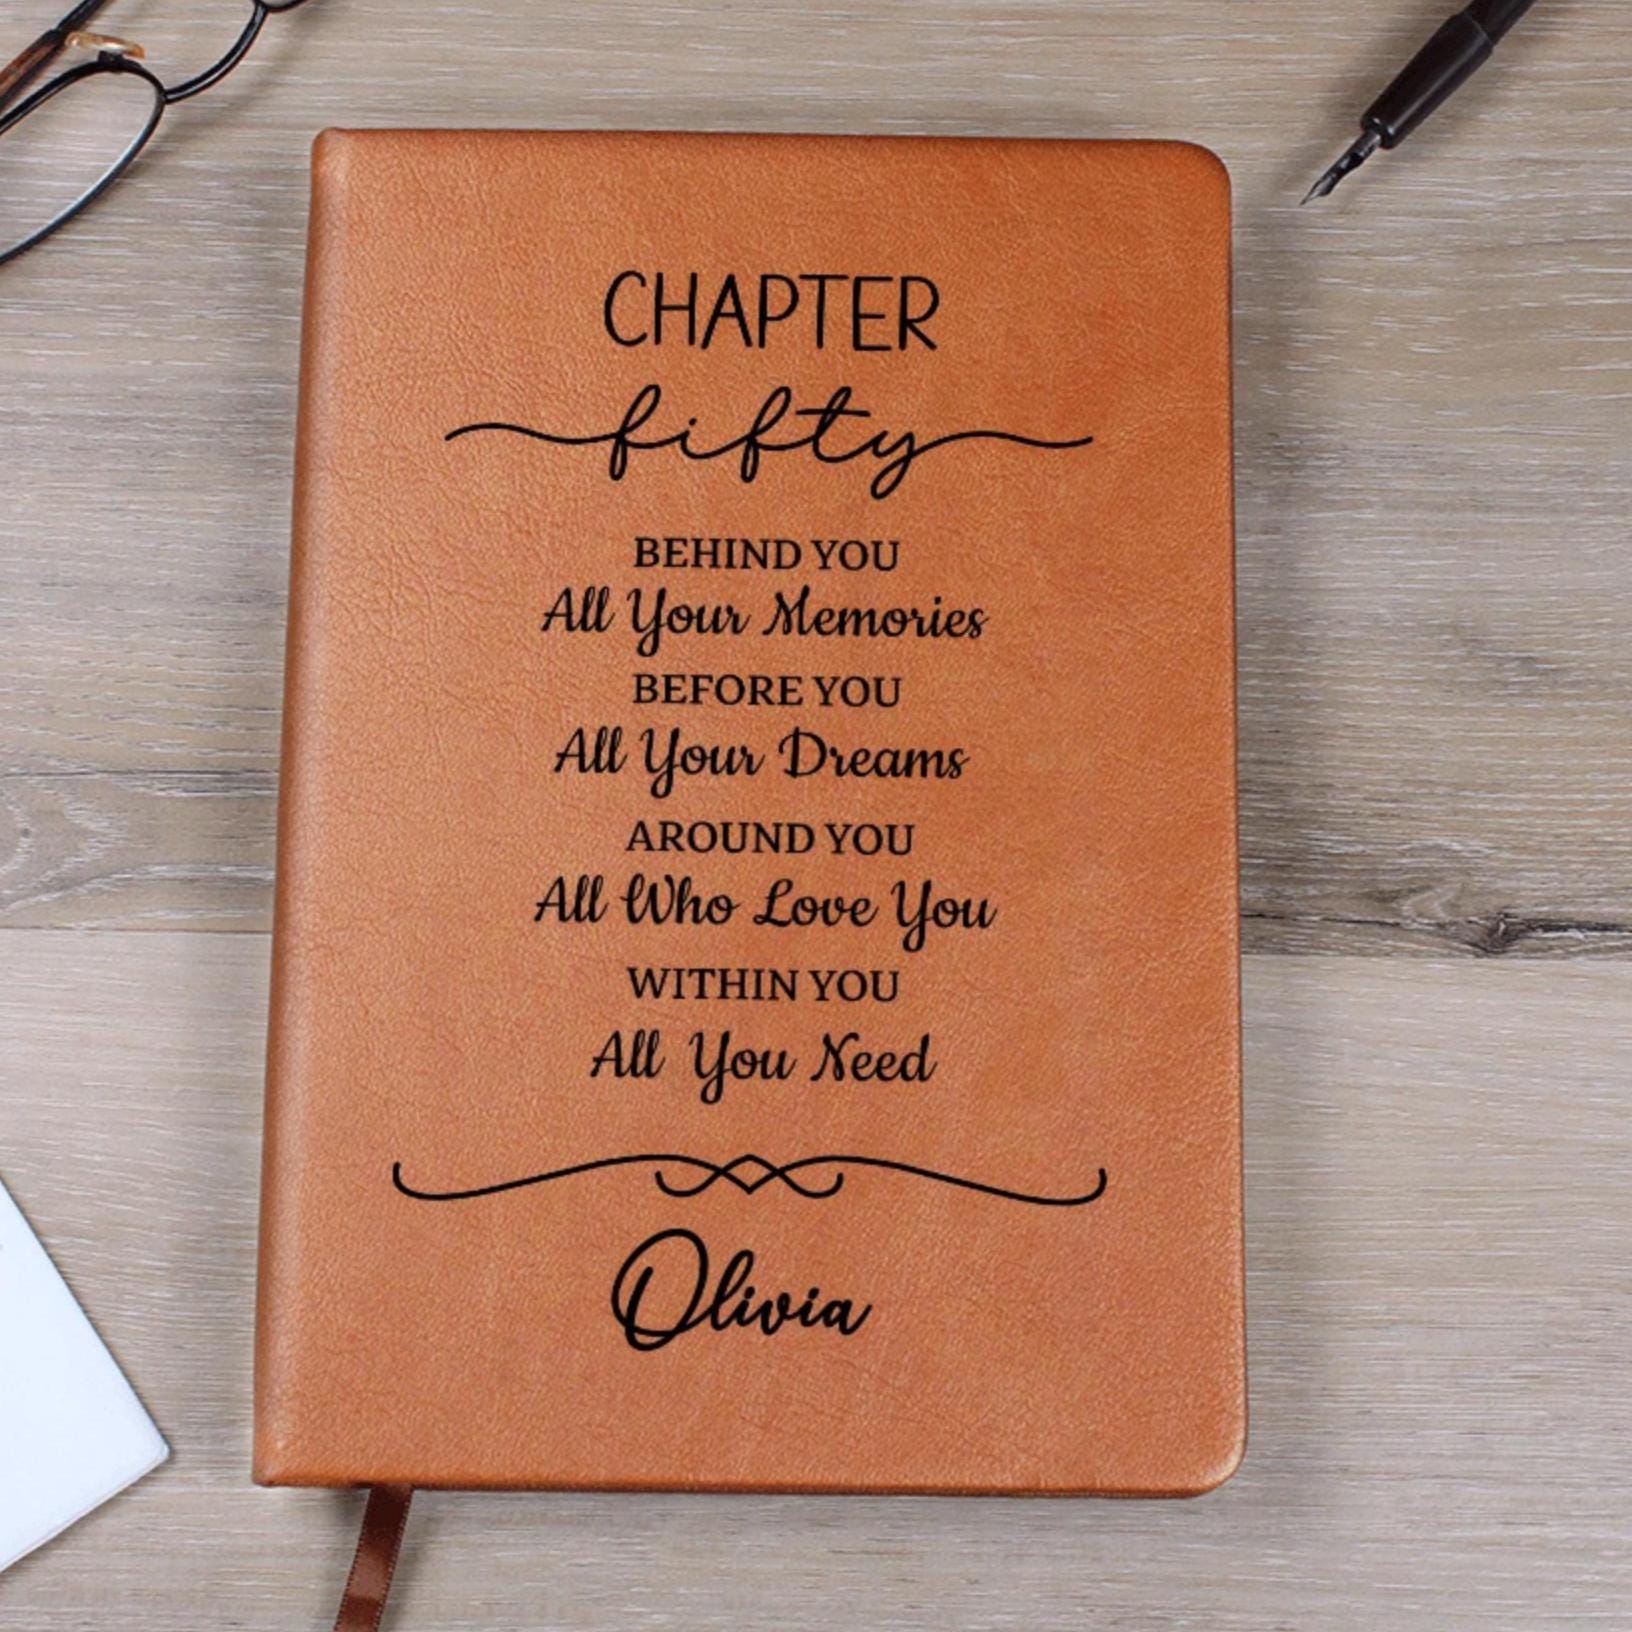 CHAPTER
fifty
BEHIND YOU
All Your Memories
BEFORE YOU
All Your Dreams
AROUND YOU
All Who Love You
WITHIN YOU
All You Need
Olivia